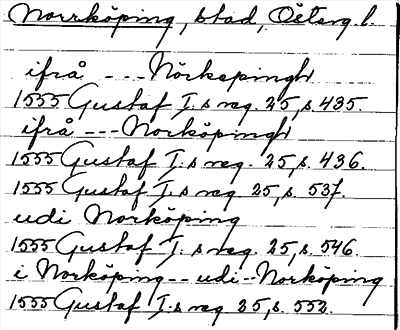 Norrköping, stad, Österg. l.
ifrå --- Nörkepingh
1555 Gustaf I:s reg. 25, s. 435.
ifrå --- Norköpingh
1555 Gustaf I:s reg. 25, s. 436.
1555 Gustaf I:s reg 25, s. 537.
udi Norköping
1555 Gustaf I:s reg. 25, s. 546.
i Norköping -- udi - Norköping
1555 Gustaf I:s reg 25, s. 552.